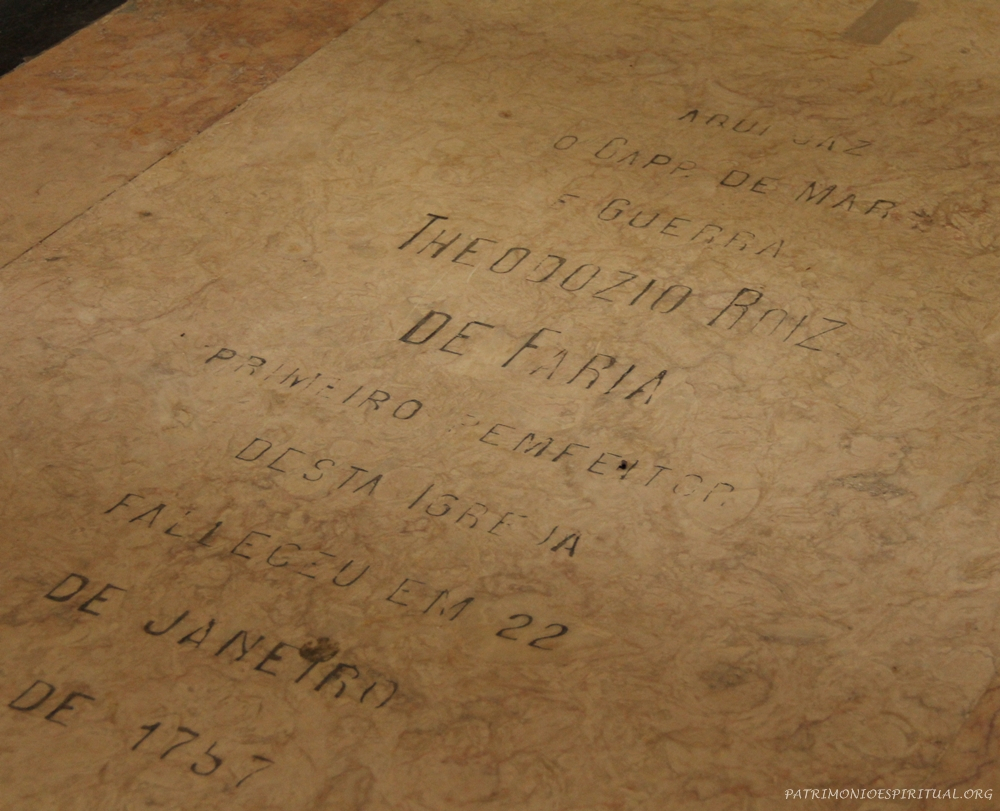 AQUI JAZ
O CAPP. DE MAR
E GUERRA
THEODOZIO ROIZ
DE FARIA
PRIMEIRO BEMFEITOR
DESTA IGREJA
FALLECEU EM 22
DE JANEIRO
DE 1757
PATRIMONIOESPIRITUAL.ORG